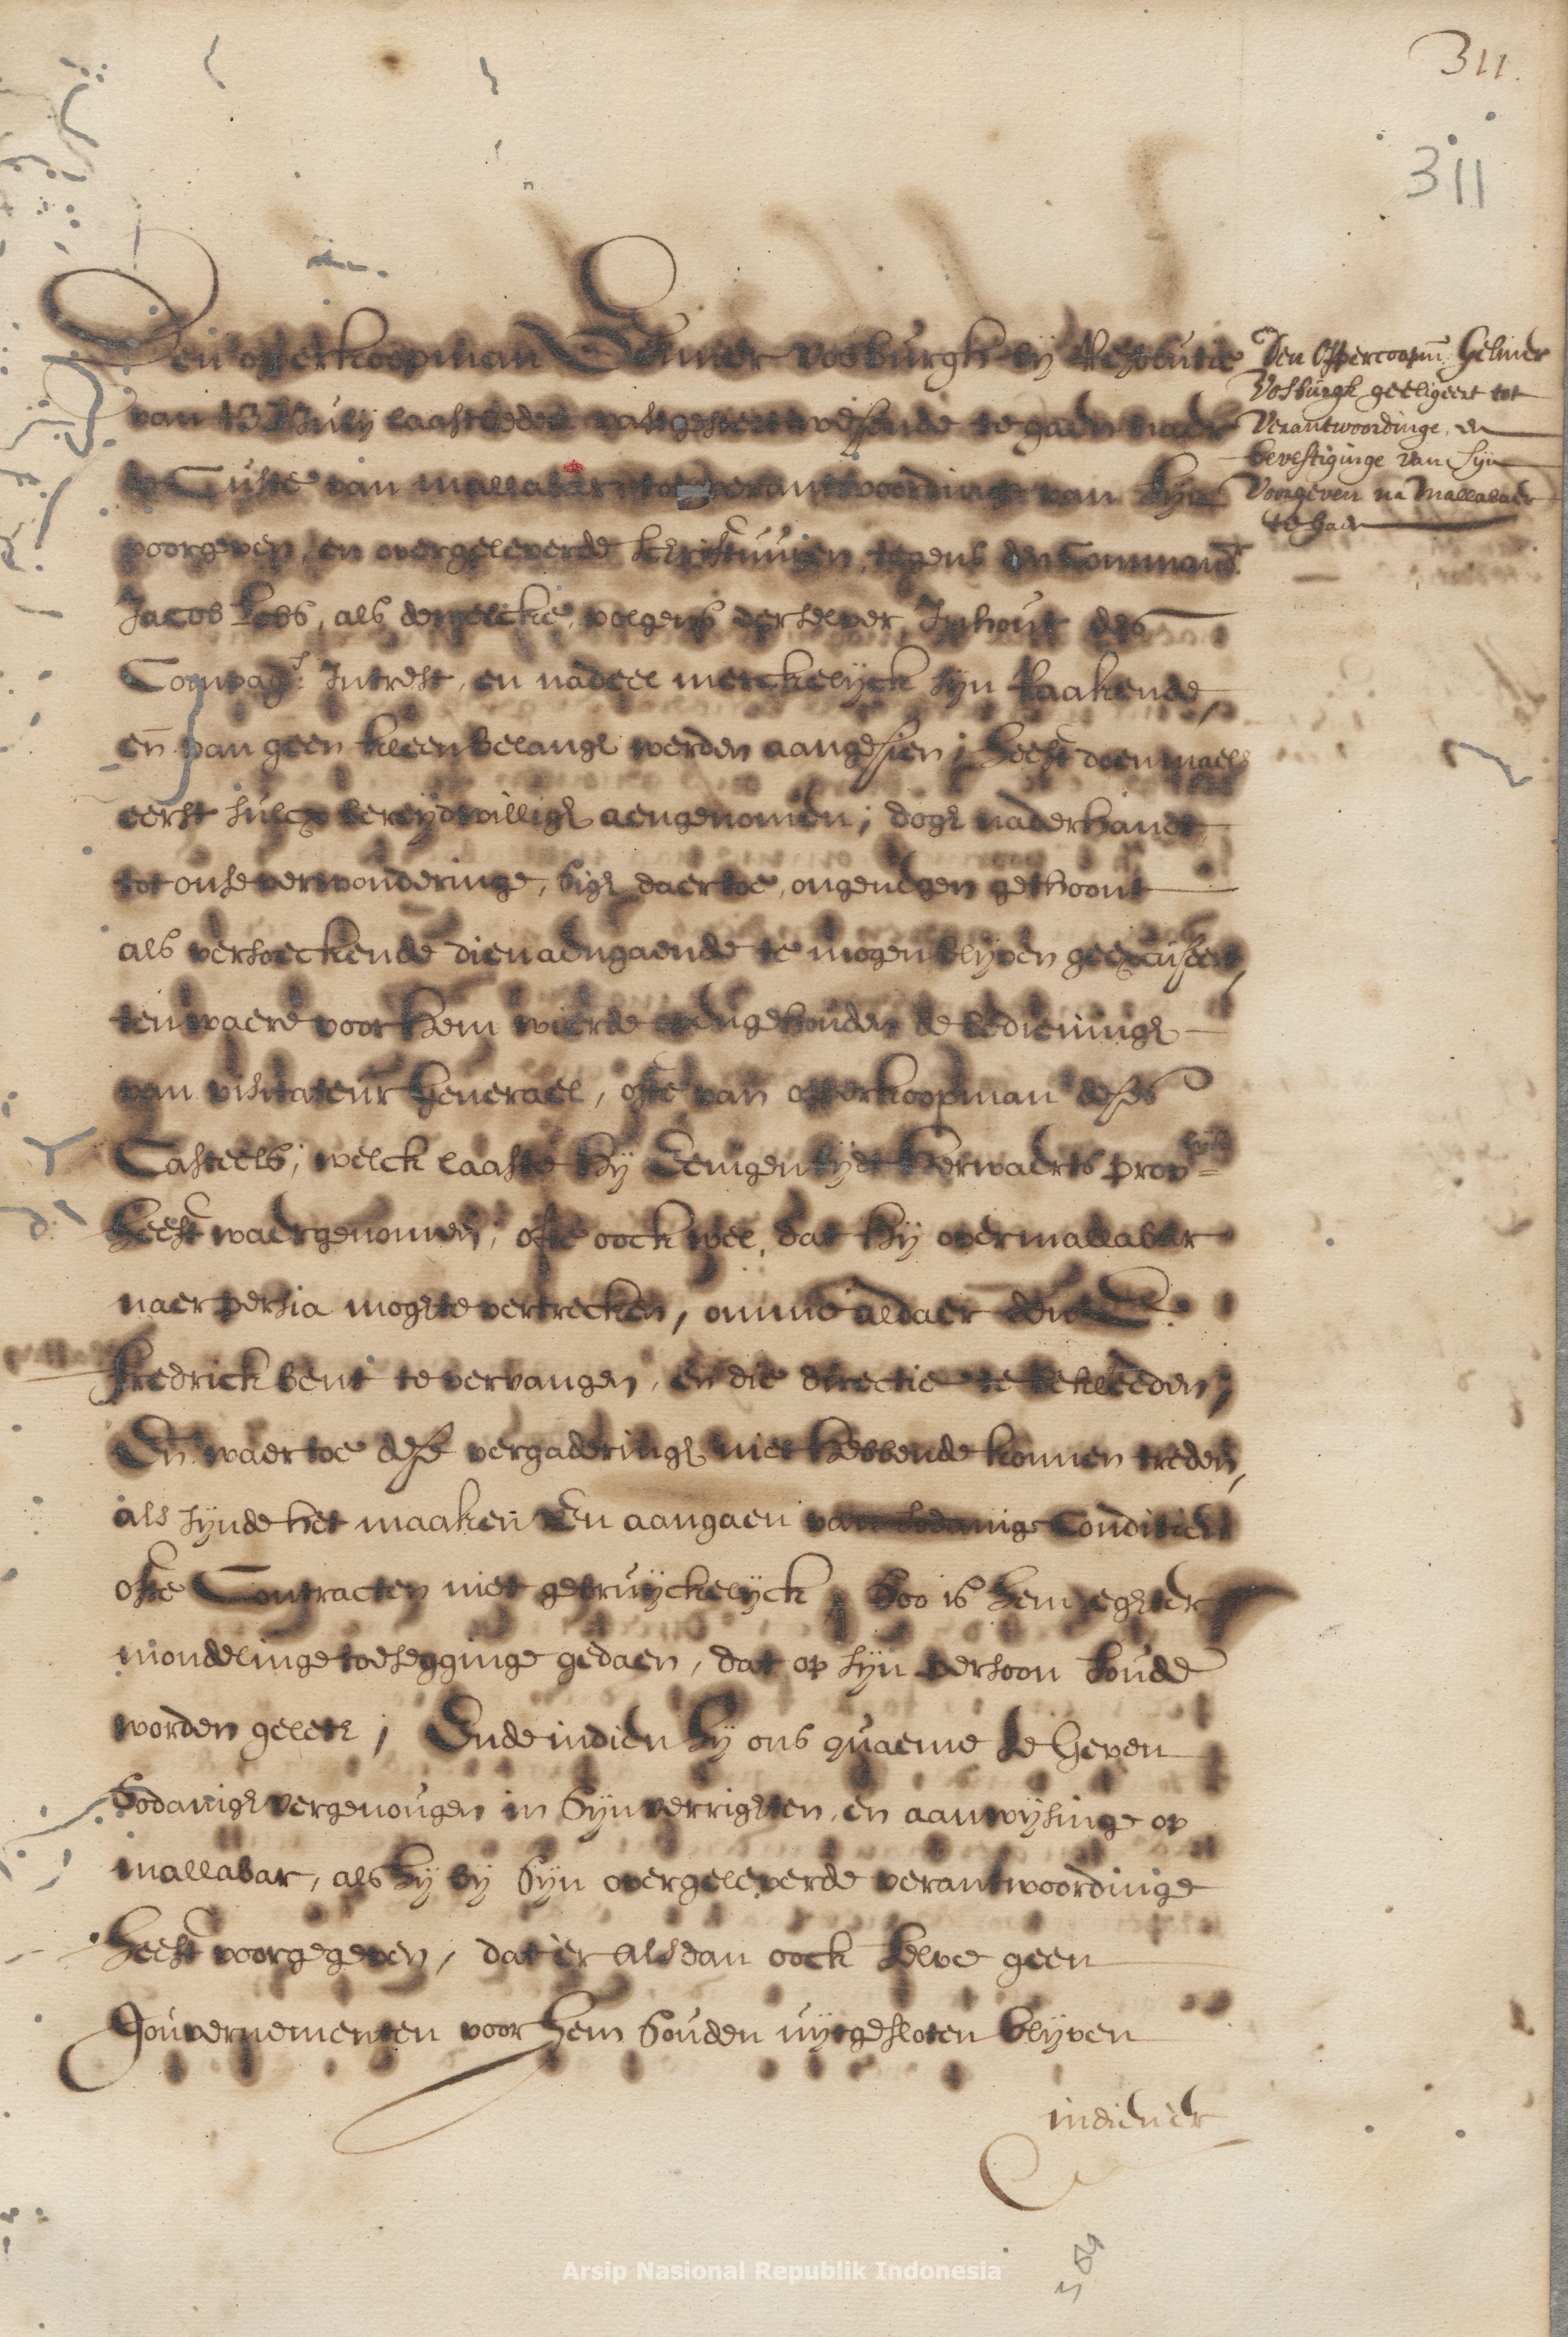 311.
311
Den opperkoopman Gelmer Vosburgh by Resolutie
van 13 July laastleden vastgestelt wesende te gaen naer
de Custe van mallabar tot verantwoordinge van syn
voorgeven, en overgeleverde schriftuuren, tegens den Command.r
Jacob Lobs, als dewelcke, volgens derselver Inhout des
Compag.s Intrest, en nadeel merckelyck syn Raakende,
en van geen kleen belangh werden aangesien; heeft doenmaels
eerst sulcx bereydwilligh aengenomen; dogh naderhandt
tot onse verwonderinge, sigh daertoe, ongenegen gethoont
als versoeckende dien aengaende te mogen blyven geexcuseert,
ten waere voor hem wierde aengehouden de bedieningh
van visitateur Generael, ofte van opperkoopman deses
Casteels; welck laaste hy Eenigen tydt herwaerts prov=
heeft waergenomen; ofte oock wel, dat hy over mallabar
naer persia moghte vertrecken, omme aldaer den E.
fredrick bent te vervangen, en die directie te bekleeden;
En waertoe dese vergaderingh niet hebbende konnen treden,
als synde het maaken En aangaen van sodanige Conditien
ofte Contracten niet gebruyckelyck; Soo is hem eghter
mondelinge toesegginge gedaen, dat op syn persoon soude
worden geleth; Ende indien hy ons quaeme te Geven
Sodanigh vergenougen in Syn verrighten, en aanwysinge op
mallabar, als hy by Syn overgeleverde verantwoordinge
heeft voorgegeven, dat'er alsdan oock selve geen
Gouvernementen voor hem Souden uytgesloten blyven
indien'er
Den Oppercoopm: Gelmer
Vosburgh geeligeert tot
Verantwoordinge, en
bevestiginge van Syn
Voorgeven na Mallabaer
te gaen
Arsip Nasional Republik Indonesia